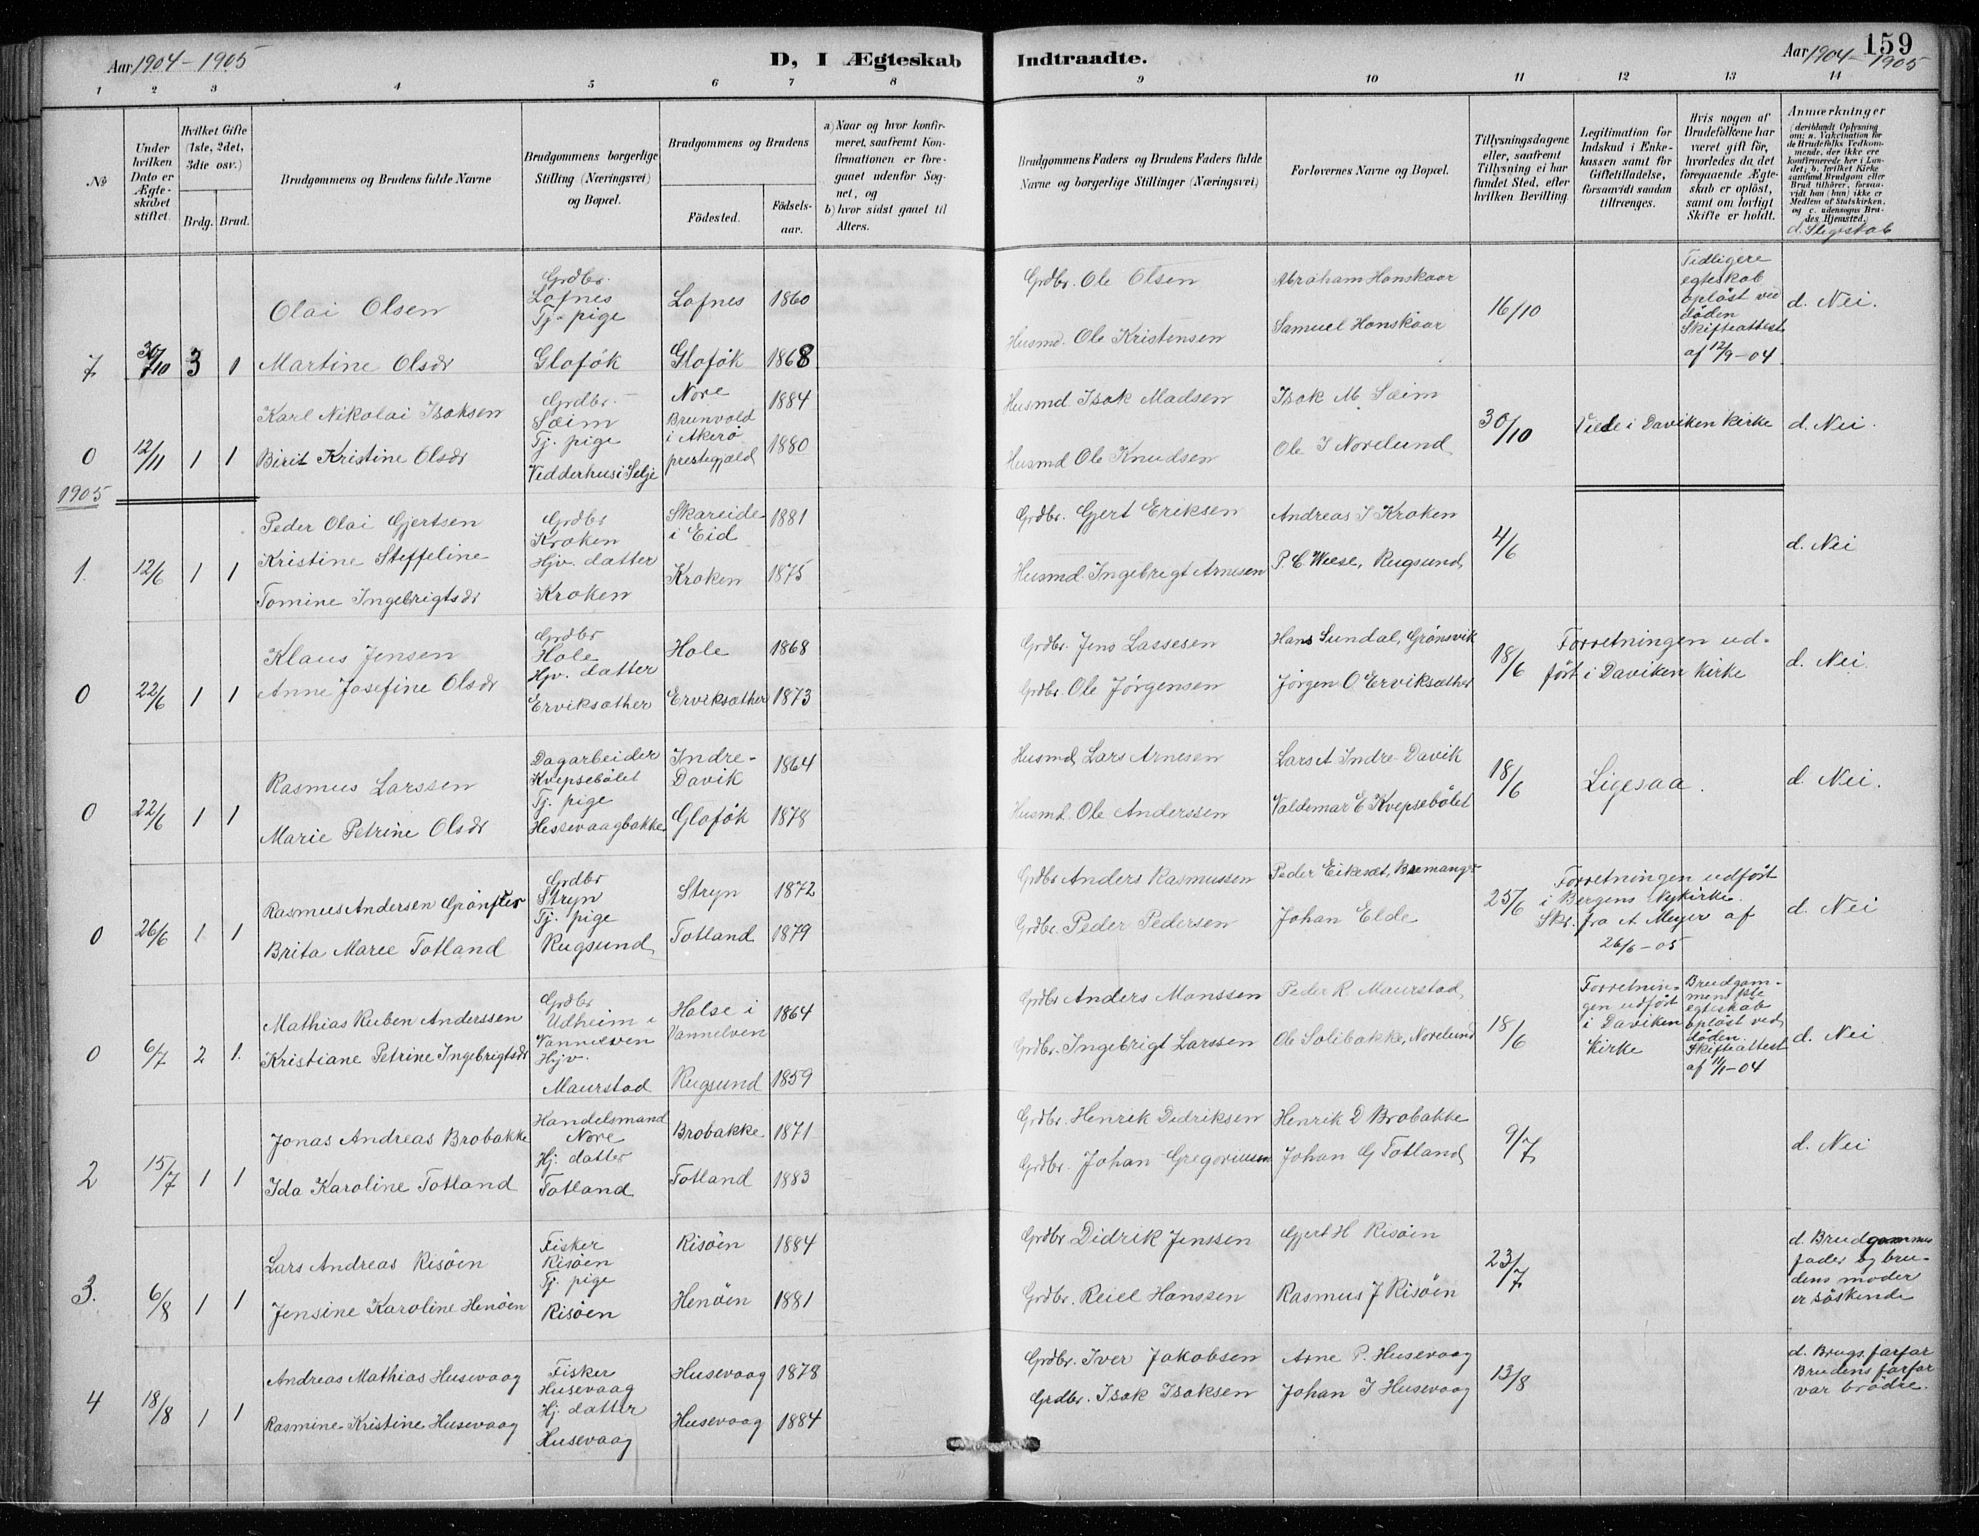 Aar 1904-1905
D, I Ægteskab Indtraadte.
Aar 1904-1905
159
1 2 3 4 5 6 7 8 9 10 11 12 13 14
No
Under hvilken Dato er Ægteskabet stiftet.
Hvilket Gifte (1ste, 2det, 3die osv.)
Brdg. Brud.
Brudgommens og Brudens fulde Navne
Brudgommens borgerlige Stilling (Næringsvei) og Bopæl.
Brudgommens og Brudens
Födested.
Födselsaar.
a) Naar og hvor konfirmeret, saafremt Konfirmationen er foregaaet udenfor Sognet, og
b) hvor sidst gaaet til Alters.
Brudgommens Faders og Brudens Faders fulde Navne og borgerlige Stillinger (Næringsvei)
Forlovernes Navne og Bopæl.
Tillysningsdagene eller, saafremt Tillysning ei har fundet Sted, efter hvilken Bevilling.
Legitimation for Indskud i Enkekassen samt for Giftetilladelse, forsaavidt saadan tiltrænges.
Hvis nogen af Brudefolkene har været gift för, hvorledes da det foregaaende Ægteskab er oplöst, samt om lovligt Skifte er holdt.
Anmærkninger
(deriblandt Oplysning om: a. Vakcination for de Brudefolks Vedkommende, der ikke ere konfirmerede her i Landet; b. hvilket Kirkesamfund Brudgom eller Brud tilhörer, forsaavidt han (hun) ikke er Medlem af Statskirken, og c. udensogns Brudes Hjemsted.)
d. Slegtskab
7 30/10 3 1
Olai Olsen
Grdbr. Lofnes
Lofnes 1860
Grdbr. Ole Olsen
Abraham Honskaar
16/10
Tidligere egteskab opløst ved døden Skifteattest af 12/9-04
d. Nei.
Martine Olsdr
Tj. pige Gloføk
Gloføk 1868
Husmd. Ole Kristensen
Samuel Honskaar
0 12/11 1 1
Karl Nikolai Isaksen
Grdbr. Sæim
Nore 1884
Husmd Isak Madsen
Isak M. Sæim
30/10
Viede i Daviken Kirke
d. Nei.
Birit Kristine Olsdr
Tj. pige Vedderhus i Selje
Brunvold i Akerø prestegjæld 1880
Husmd Ole Knudsen
Ole I Norelund
1905
1. 12/6 1 1
Peder Olai Gjertsen
Grdbr Kroken
Skareide i Eid 1881
Grdbr. Gjert Eriksen
Andreas I Kroken
4/6
d. Nei
Kristine Steffeline Tomine Ingebrigtsdr
Hjv. datter Kroken
Kroken 1875
Husmd. Ingebrigt Arnesen
P. C. Weese, Rugsund
0 22/6 1 1
Klaus Jensen
Grdbr Hole
Hole 1868
Grdbr. Jens Lassesen
Hans Sundal, Grønsvik
18/6
Forretningen udført i Daviken Kirke
d. Nei.
Anne Josefine Olsdr
Hjv. datter Erviksæther
Erviksæther 1873
Grdbr. Ole Jørgensen
Jørgen O Erviksæther
0 22/6 1 1
Rasmus Larssen
Dagarbeider Kvepsebølet
Indre-Davik 1864
Husmd Lars Arnesen
Lars A Indre Davik
18/6
Ligesaa.
d. Nei.
Marie Petrine Olsdr
Tj. pige Hessevaagbakke
Gloføk 1878
Husmd. Ole Anderssen
Valdemar E Kvepsebølet
0 26/6 1 1
Rasmus Andersen
Grdbr Stryn
Stryn 1872
Grdbr Anders Rasmussen
Peder Eikeset, Bremanger
25/6
Forretningen udført i Bergens Nykirke. Skr. fra A Meyer af 26/6-05
d. Nei
Brita Maree Totland
Tj. pige Rugsund
Totland 1879
Grdbr. Peder Pedersen
Johan Elde
0 6/7 2 1.
Mathias Ruben Anderssen
Grdbr Udheim i Vannelven
Holse i Vannelven 1864
Grdbr Anders Monssen
Peder R. Maurstad
18/6
Forretningen udført i Daviken Kirke
Brudgommens 1ste egteskab opløst ved døden. Skifteattest af 11/1-04
d. Nei
Kristiane Petrine Ingebrigtsdr
Hjv. Maurstad
Rugsund 1859
Grdbr. Ingebrigt Larssen
Ole Solibakke, Norelund
2 15/7 1 1
Jonas Andreas Brobakke
Handelsmand Nore
Brobakke 1871
Grdbr. Henrik Didriksen
Henrik D Brobakke
9/7
d. Nei
Ida Karoline Totland
Hj. datter Totland
Totland 1883
Grdbr. Johan Gregoriussen
Johan G Totland
3. 6/8 1 1
Lars Andreas Risøen
Fisker Risøen
Risøen 1884
Grdbr Didrik Jenssen
Gjert H Risøen
23/7
d. Brudgommens fader og brudens moder er søskende
Jensine Karoline Henøen
Tj. pige Risøen
Henøen 1881
Grdbr. Reiel Hanssen
Rasmus J Risøen
4 18/8 1 1
Andreas Mathias Husevaag
Fisker Husevaag
Husevaag 1878
Grdbr. Iver Jakobsen
Arne P. Husevaag
13/8
d. Brugs. farfar Brudens farfar var brødre.
Rasmine Kristine Husevaag
Hj. datter Husevaag
Husevaag 1884
Grdbr. Isak Isaksen
Johan I Husevaag